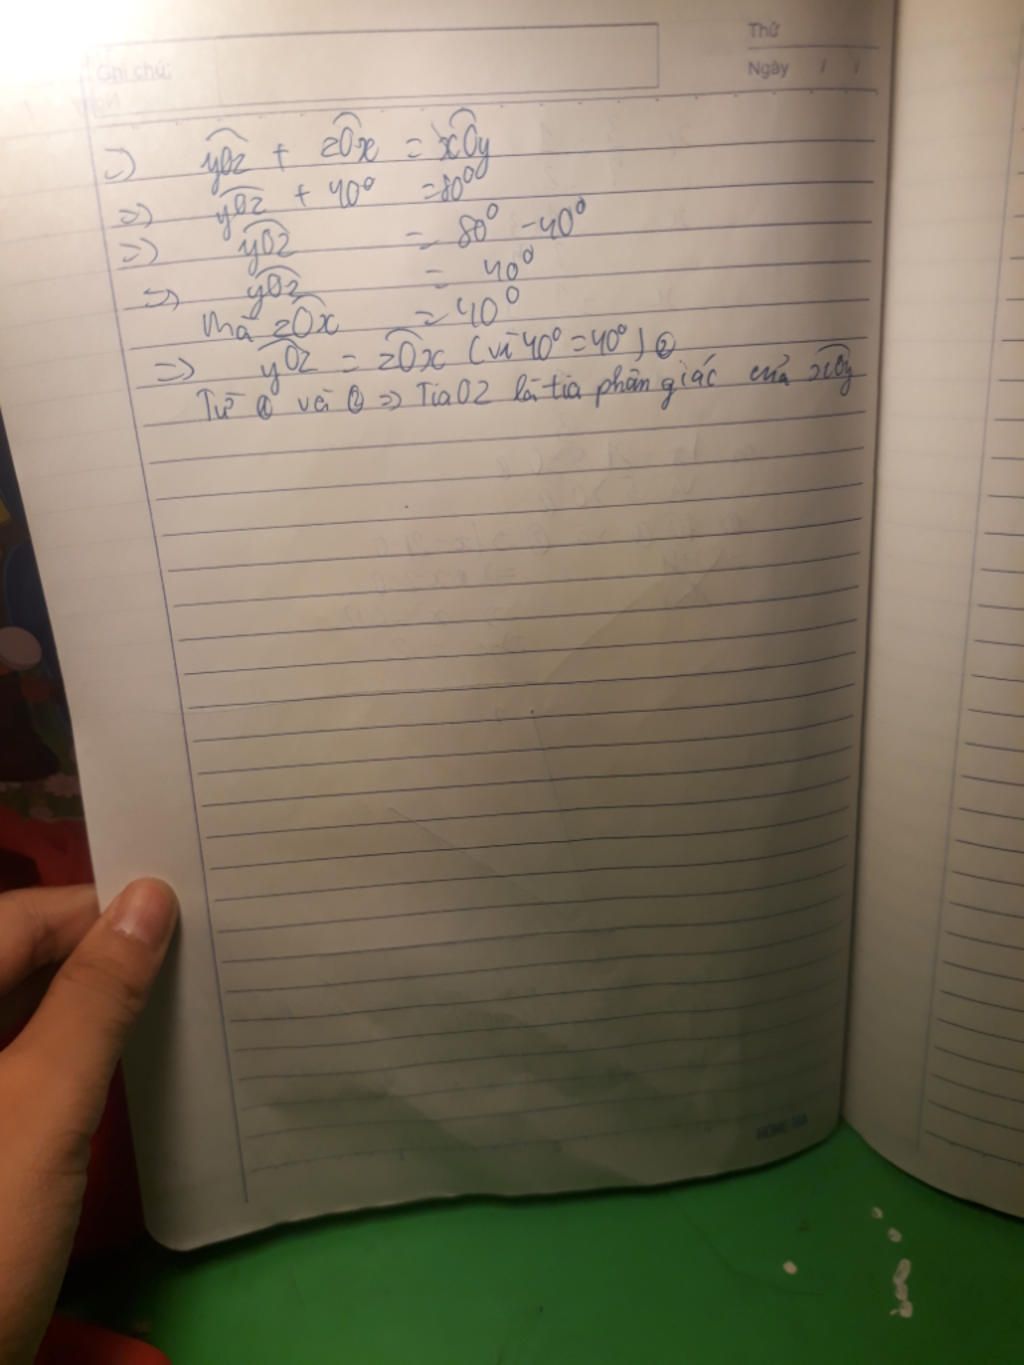 Ghi chú:
Thứ
Ngày / /
=> yOz + zOx = xOy
=> yOz + 40° = 80°
=> yOz = 80° - 40°
=> yOz = 40°
mà zOx = 40°
=> yOz = zOx (vì 40° = 40°) ②
Từ ① và ② => Tia Oz là tia phân giác của xOy